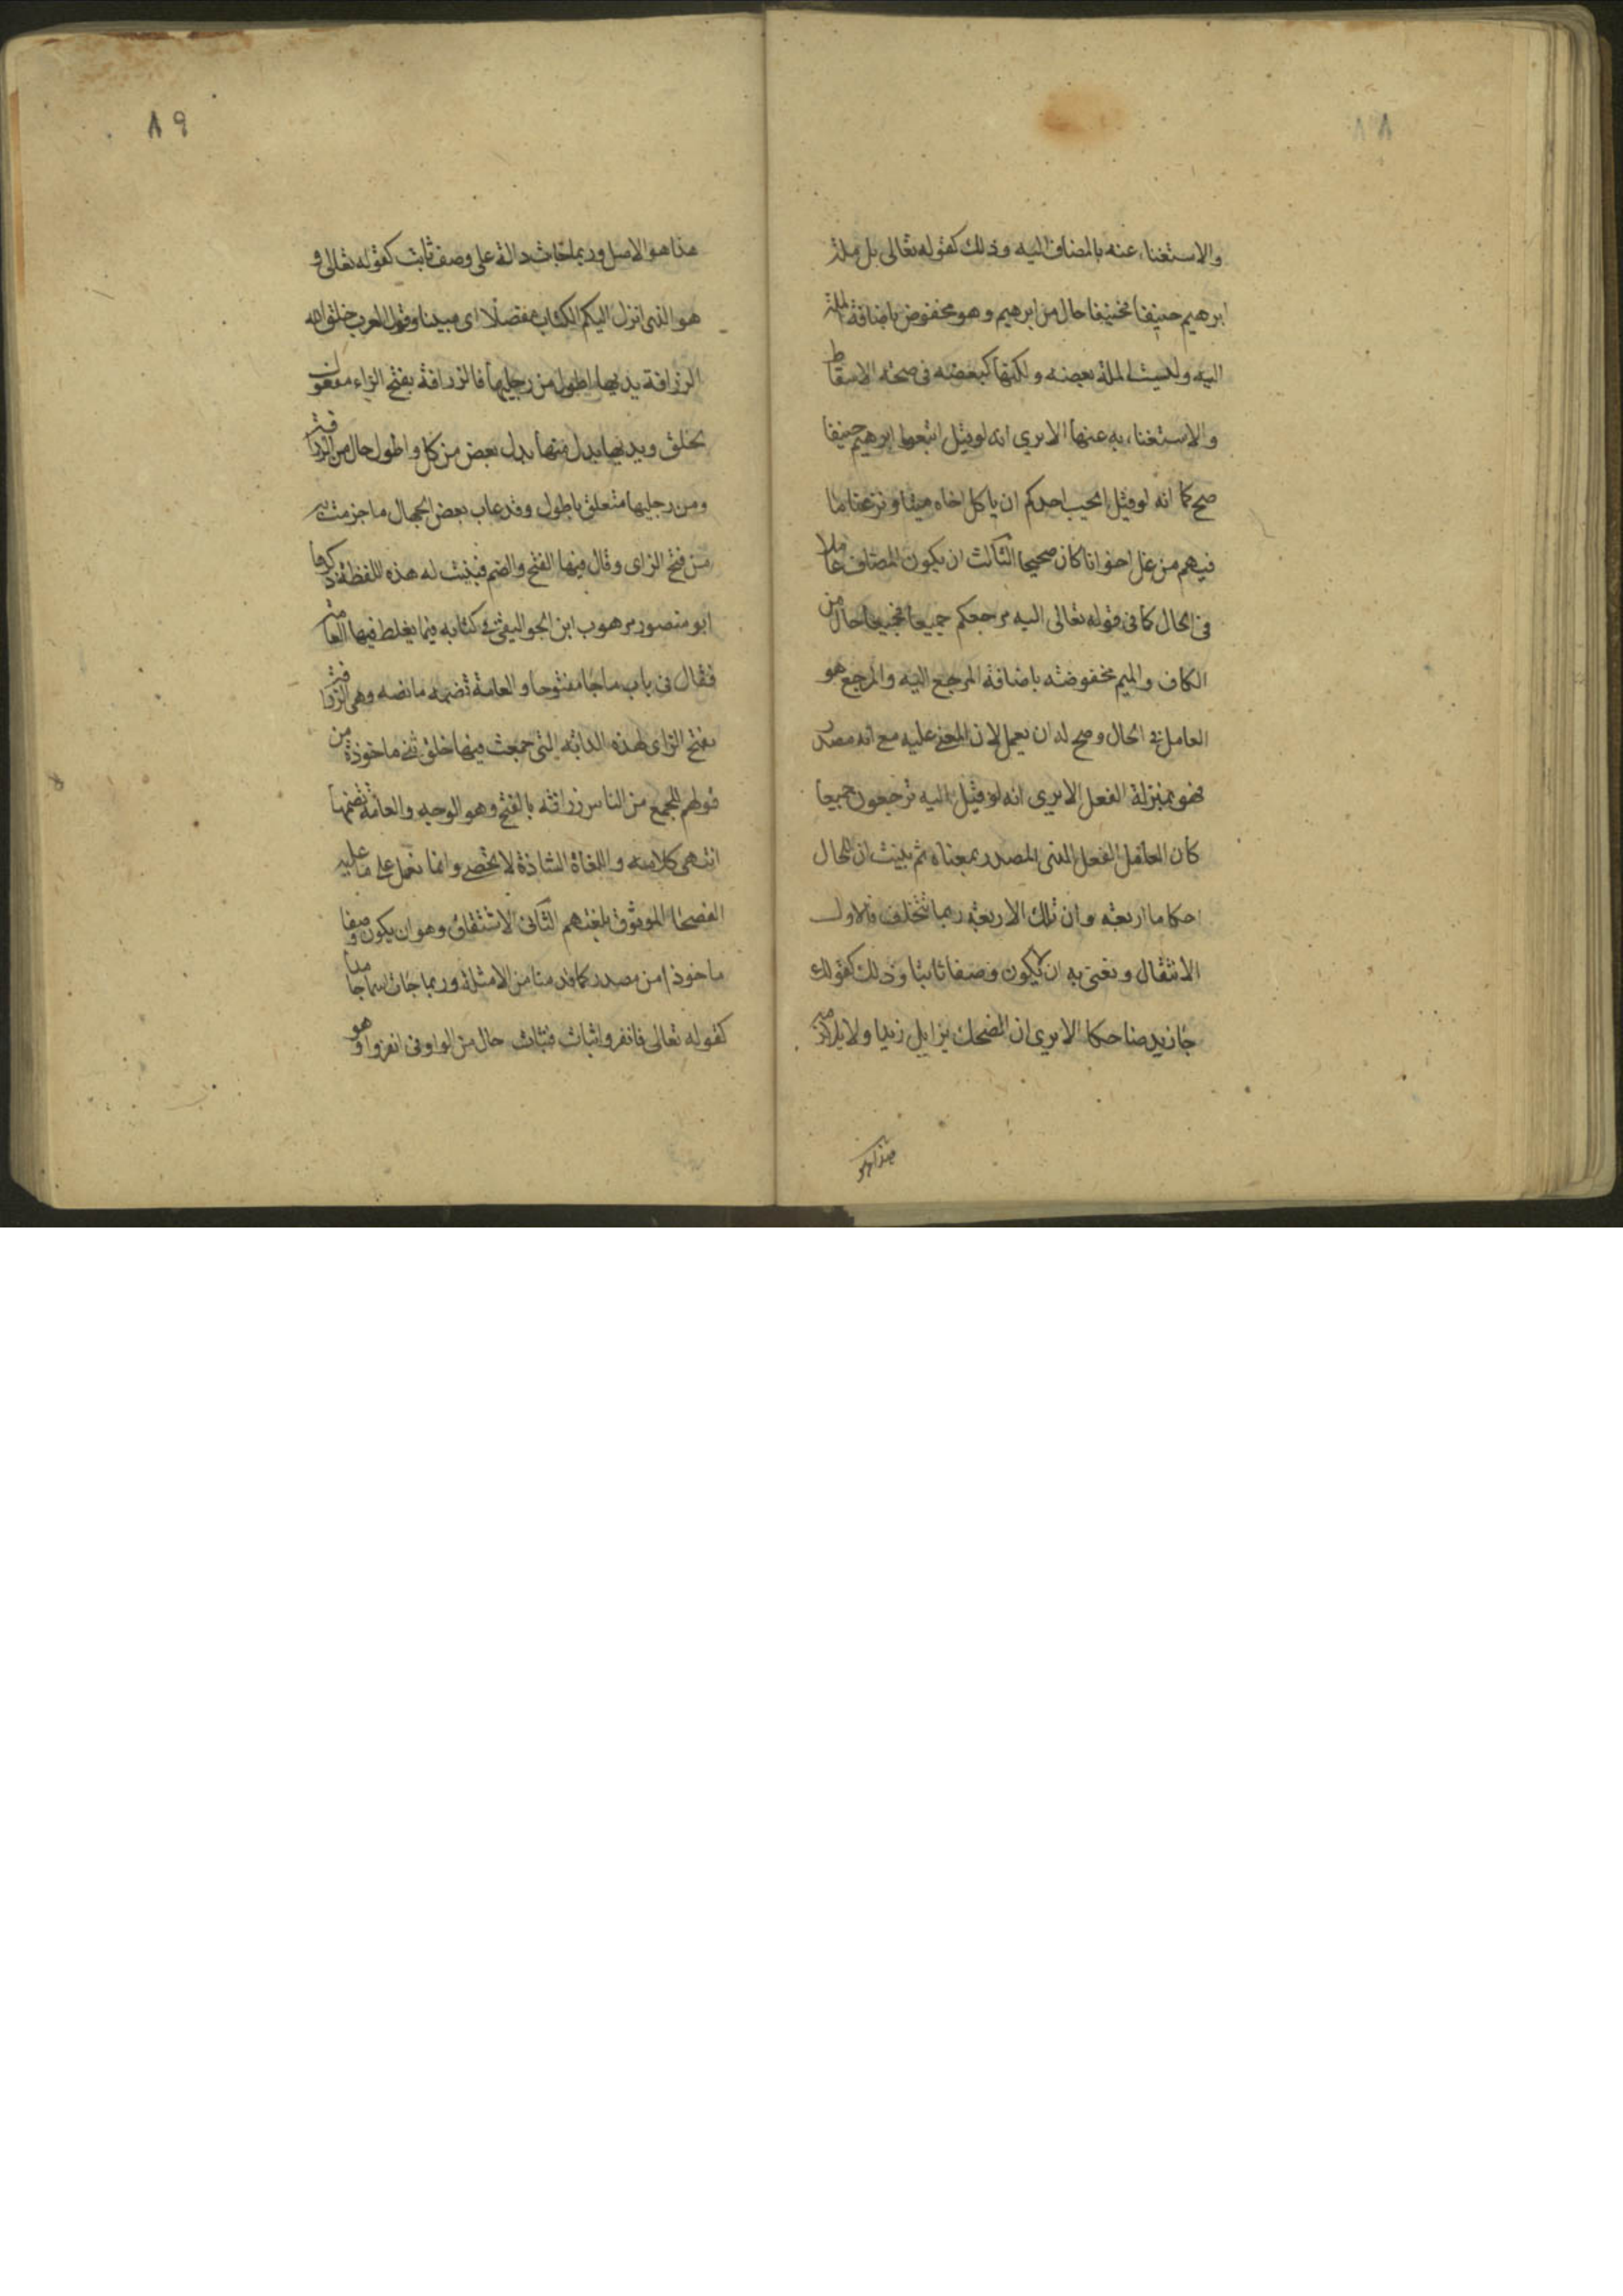 ٨٨
والاستغناء عنه بالمضاف اليه وذلك كقوله تعالى بل ملة
ابرهيم حنيفا فحنيفا حال من ابرهيم وهو مخفوض باضافة الملة
اليه وليست الملة بعضه ولكنها كبعضه فى صحة الاسقاط
والاستغناء به عنها الا يرى انه لو قيل اتبعوا ابرهيم حنيفا
صح كما انه لو قيل ايحب احدكم ان ياكل اخاه ميتا ونزعنا ما
فيهم من غل اخوانا كان صحيحا الثالث ان يكون المضاف عاملا
فى الحال كما فى قوله تعالى اليه مرجعكم جميعا فجميعا حال من
الكاف والميم مخفوضة باضافة المرجع اليه والمرجع هو
العامل فى الحال وصح له ان يعمل لان المعنى عليه مع انه مصدر
فهو بمنزلة الفعل الا يرى انه لو قيل اليه ترجعون جميعا
كان العامل الفعل الذى المصدر بمعناه ثم بينت ان للحال
احكاما اربعة وان تلك الاربعة ربما تتخلف فالاول
الانتقال ونعنى به ان لا يكون وصفا ثابتا وذلك كقولك
جا زيد ضاحكا الا يرى ان الضحك يزايل زيدا ولا يلازمه
هذا هو
٨٩
هذا هو الاصل وربما جات دالة على وصف ثابت كقوله تعالى و
هو الذى انزل اليكم الكتاب مفصلا اى مبينا وقول العرب خلق الله
الزرافة يديها اطول من رجليها فالزرافة بفتح الزاء مفعول
لخلق ويديها بدل منها بدل بعض من كل واطول حال من الزرافة
ومن رجليها متعلق باطول وقد عاب بعض الجهال ما جزمت به
من فتح الزاى وقال فيها الفتح والضم فبينت له هذه اللفظة ذكرها
ابو منصور موهوب ابن الجواليقى فى كتابه فيما يغلط فيها العامة
فقال فى باب ما جا مفتوحا والعامة تضمه ما نصه وهى الزرافة
بفتح الزاى لهذه الدابة التى جمعت فيها خلق شى ماخوذة من
قولهم للجمع من الناس زرافة بالفتح وهو الوجه والعامة تضمها
انتهى كلامه واللغاة الشاذة لا تحصى وانما نعمل على ما عليه
الفصحا الموثوق بلغتهم الثانى الاشتقاق وهو ان يكون وصفا
ماخوذا من مصدر كما قدمنا من الامثلة وربما جات اسما جامدا
كقوله تعالى فانفروا ثبات فثبات حال من الواو فى انفروا وهو